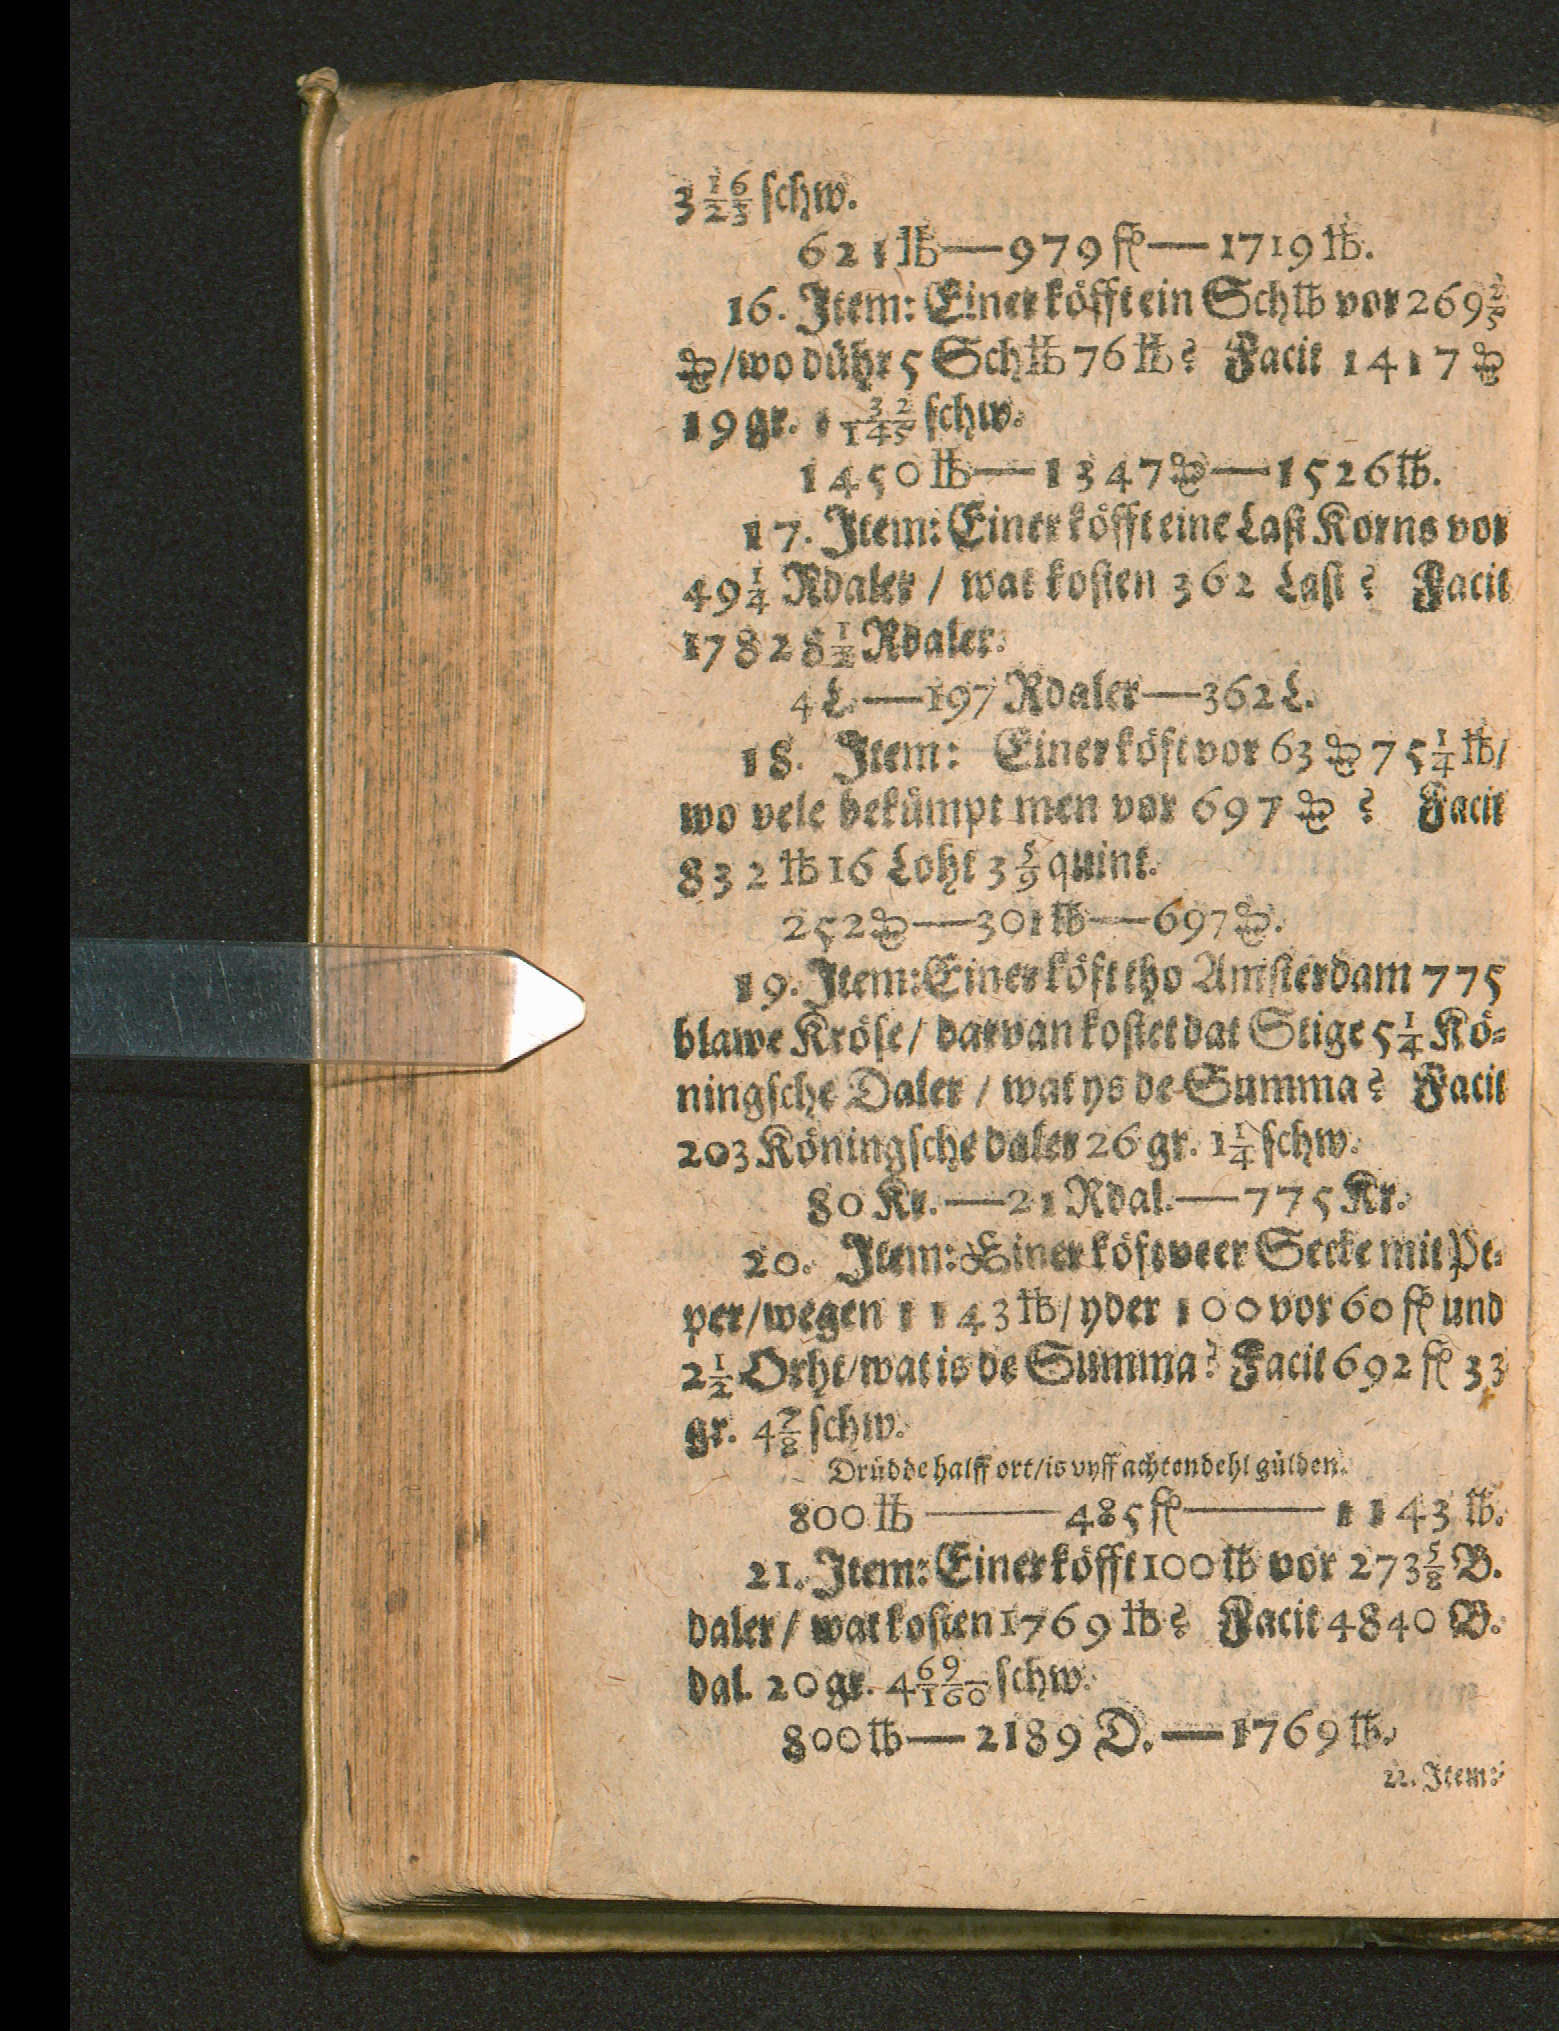 3 16/23 schw.
621 ℔—979 fl—1719 ℔.
16. Item: Einer köfft ein Sch℔ vor 269 2/5
₰/wo dühr 5 Sch℔ 76 ℔? Facit 1417 ₰
19 gr. 1 32/145 schw.
1450 ℔—1347 ₰—1526 ℔.
17. Item: Einer köfft eine Last Korns vor
49 1/4 Rdaler / wat kosten 362 Last? Facit
17828 1/2 Rdaler.
4 L.—197 Rdaler—362 L.
18. Item: Einer köft vor 63 ₰ 75 1/4 ℔/
wo vele bekümpt men vor 697 ₰? Facit
832 ℔ 16 Loht 3 5/9 quint.
252 ₰—301 ℔—697 ₰.
19. Item: Einer köft tho Amsterdam 775
blawe Kröse/ darvan kostet dat Stige 5 1/4 Kö-
ningsche Daler / wat ys de Summa? Facit
203 Köningsche daler 26 gr. 1 1/4 schw.
80 Kr.—21 Rdal.—775 Kr.
20. Item: Einer köft veer Secke mit Pe-
per/wegen 1143 ℔/ yder 100 vor 60 fl und
2 1/2 Orht/wat is de Summa? Facit 692 fl 33
gr. 4 7/8 schw.
Drüdde halff ort/is vyff achtendehl gülden.
800 ℔——485 fl——1143 ℔.
21. Item: Einer köfft 100 ℔ vor 273 5/8 B.
daler / wat kosten 1769 ℔? Facit 4840 B.
dal. 20 gr. 4 69/160 schw.
800 ℔—2189 D.—1769 ℔.
22. Item: